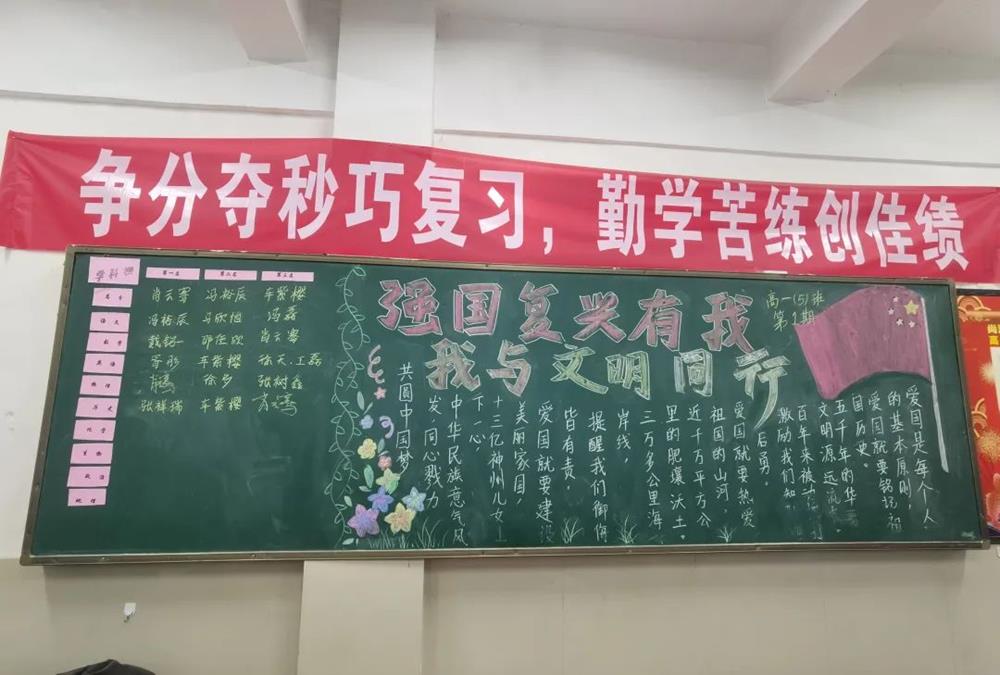 争分夺秒巧复习，勤学苦练创佳绩
学科
第一名 第二名 第三名
肖云骞 冯裕辰 车紫樱
语文 冯裕辰 马欣恒 冯磊
数学 肖云骞
英语 车紫樱
物理 徐多 张树鑫
历史 张祥瑞 车紫樱
化学
生物
政治
地理
强国复兴有我
我与文明同行
高一(5)班
第1期
爱国是每个人
的基本原则，
爱国就要铭记祖
国历史。
五千年的华
文明源远流
百年来被
激励我们知
后勇。
爱国就要热爱
祖国的山河，
近千万平方公
里的肥壤沃土。
三万多公里海
岸线，
提醒我们御侮
皆有责，
爱国就要建设
美丽家园，
十三亿神州儿女上
下一心，
中华民族意气风
发，同心戮力
共圆中国梦